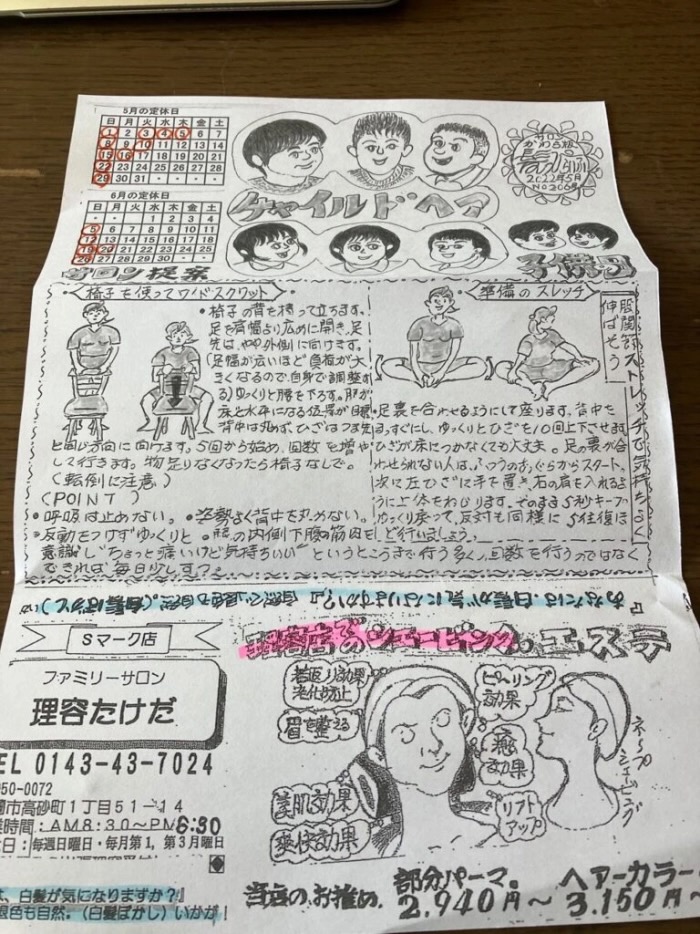 5月の定休日
日 月 火 水 木 金 土
1 2 3 4 5 6 7
8 9 10 11 12 13 14
15 16 17 18 19 20 21
22 23 24 25 26 27 28
29 30 31 ・ ・ ・ ・
6月の定休日
日 月 火 水 木 金 土
・ ・ ・ 1 2 3 4
5 6 7 8 9 10 11
12 13 14 15 16 17 18
19 20 21 22 23 24 25
26 27 28 29 30 ・ ・
チャイルドヘア
サロン
かわら版
2022年5月
No206号
サロン提案
椅子を使ってワイドスクワット
・椅子の背を持って立ちます。
足を肩幅より広めに開き、足
先は、やや外側に向けます。
(足幅が広いほど負荷が大
きくなるので、自身で調整する)
ゆっくりと腰を下ろす。
床と水平になる位置が目標
背中は丸めず、ひざはつま先
と同じ方向に向けます。5回から始め、回数を増や
して行きます。物足りなくなったら椅子なしで。
(転倒に注意)
(POINT)
・呼吸は止めない。・姿勢よく背中を丸めない。
・反動をつけずゆっくりと
の内側下腹の筋肉を
意識し"ちょっと痛いけど気持ちいい"というところまで行う
多く、回数を行うのではなく
できれば毎日少しずつ。
準備のストレッチ
股関節ストレッチで気持ちよく
伸ばそう
・足裏を合わせるようにして座ります。背中を
まっすぐにし、ゆっくりとひざを10回上下させます
ひざが床につかなくても大丈夫。足の裏が合
わせられない人は、ふつうのあぐらからスタート。
次に左ひざに手を置き、右の肩を入れるよ
うに上体をねじります。そのまま5秒キープ
ゆっくり戻って、反対も同様に5往復ほ
ど行いましょう。
『あなたは、白髪が気になりますか?』
Sマーク店
ファミリーサロン
理容たけだ
EL 0143-43-7024
050-0072
蘭市高砂町1丁目51-14
業時間:AM8:30~PM6:30
日:毎週日曜日・毎月第1, 第3月曜日
は、白髪が気になりますか?』
銀色も自然。(白髪ぼかし)いかが!
理容店でのシェービング。エステ
若返り効果
老化防止
眉を整える
美肌効果
爽快効果
ピーリング
効果
癒し
効果
リフト
アップ
ネープ
シェービング
当店のお推め。
部分パーマ。
2.940円~
ヘアーカラー
3.150円~